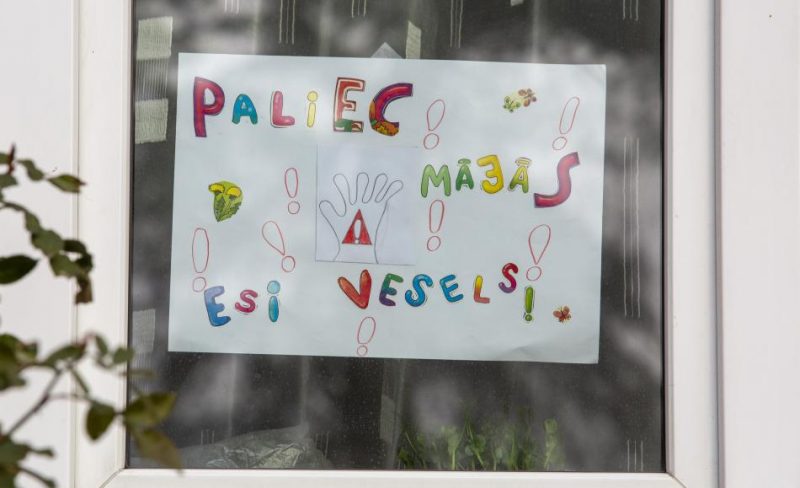 PALIEC
MĀJĀS
!
ESI VESELS!